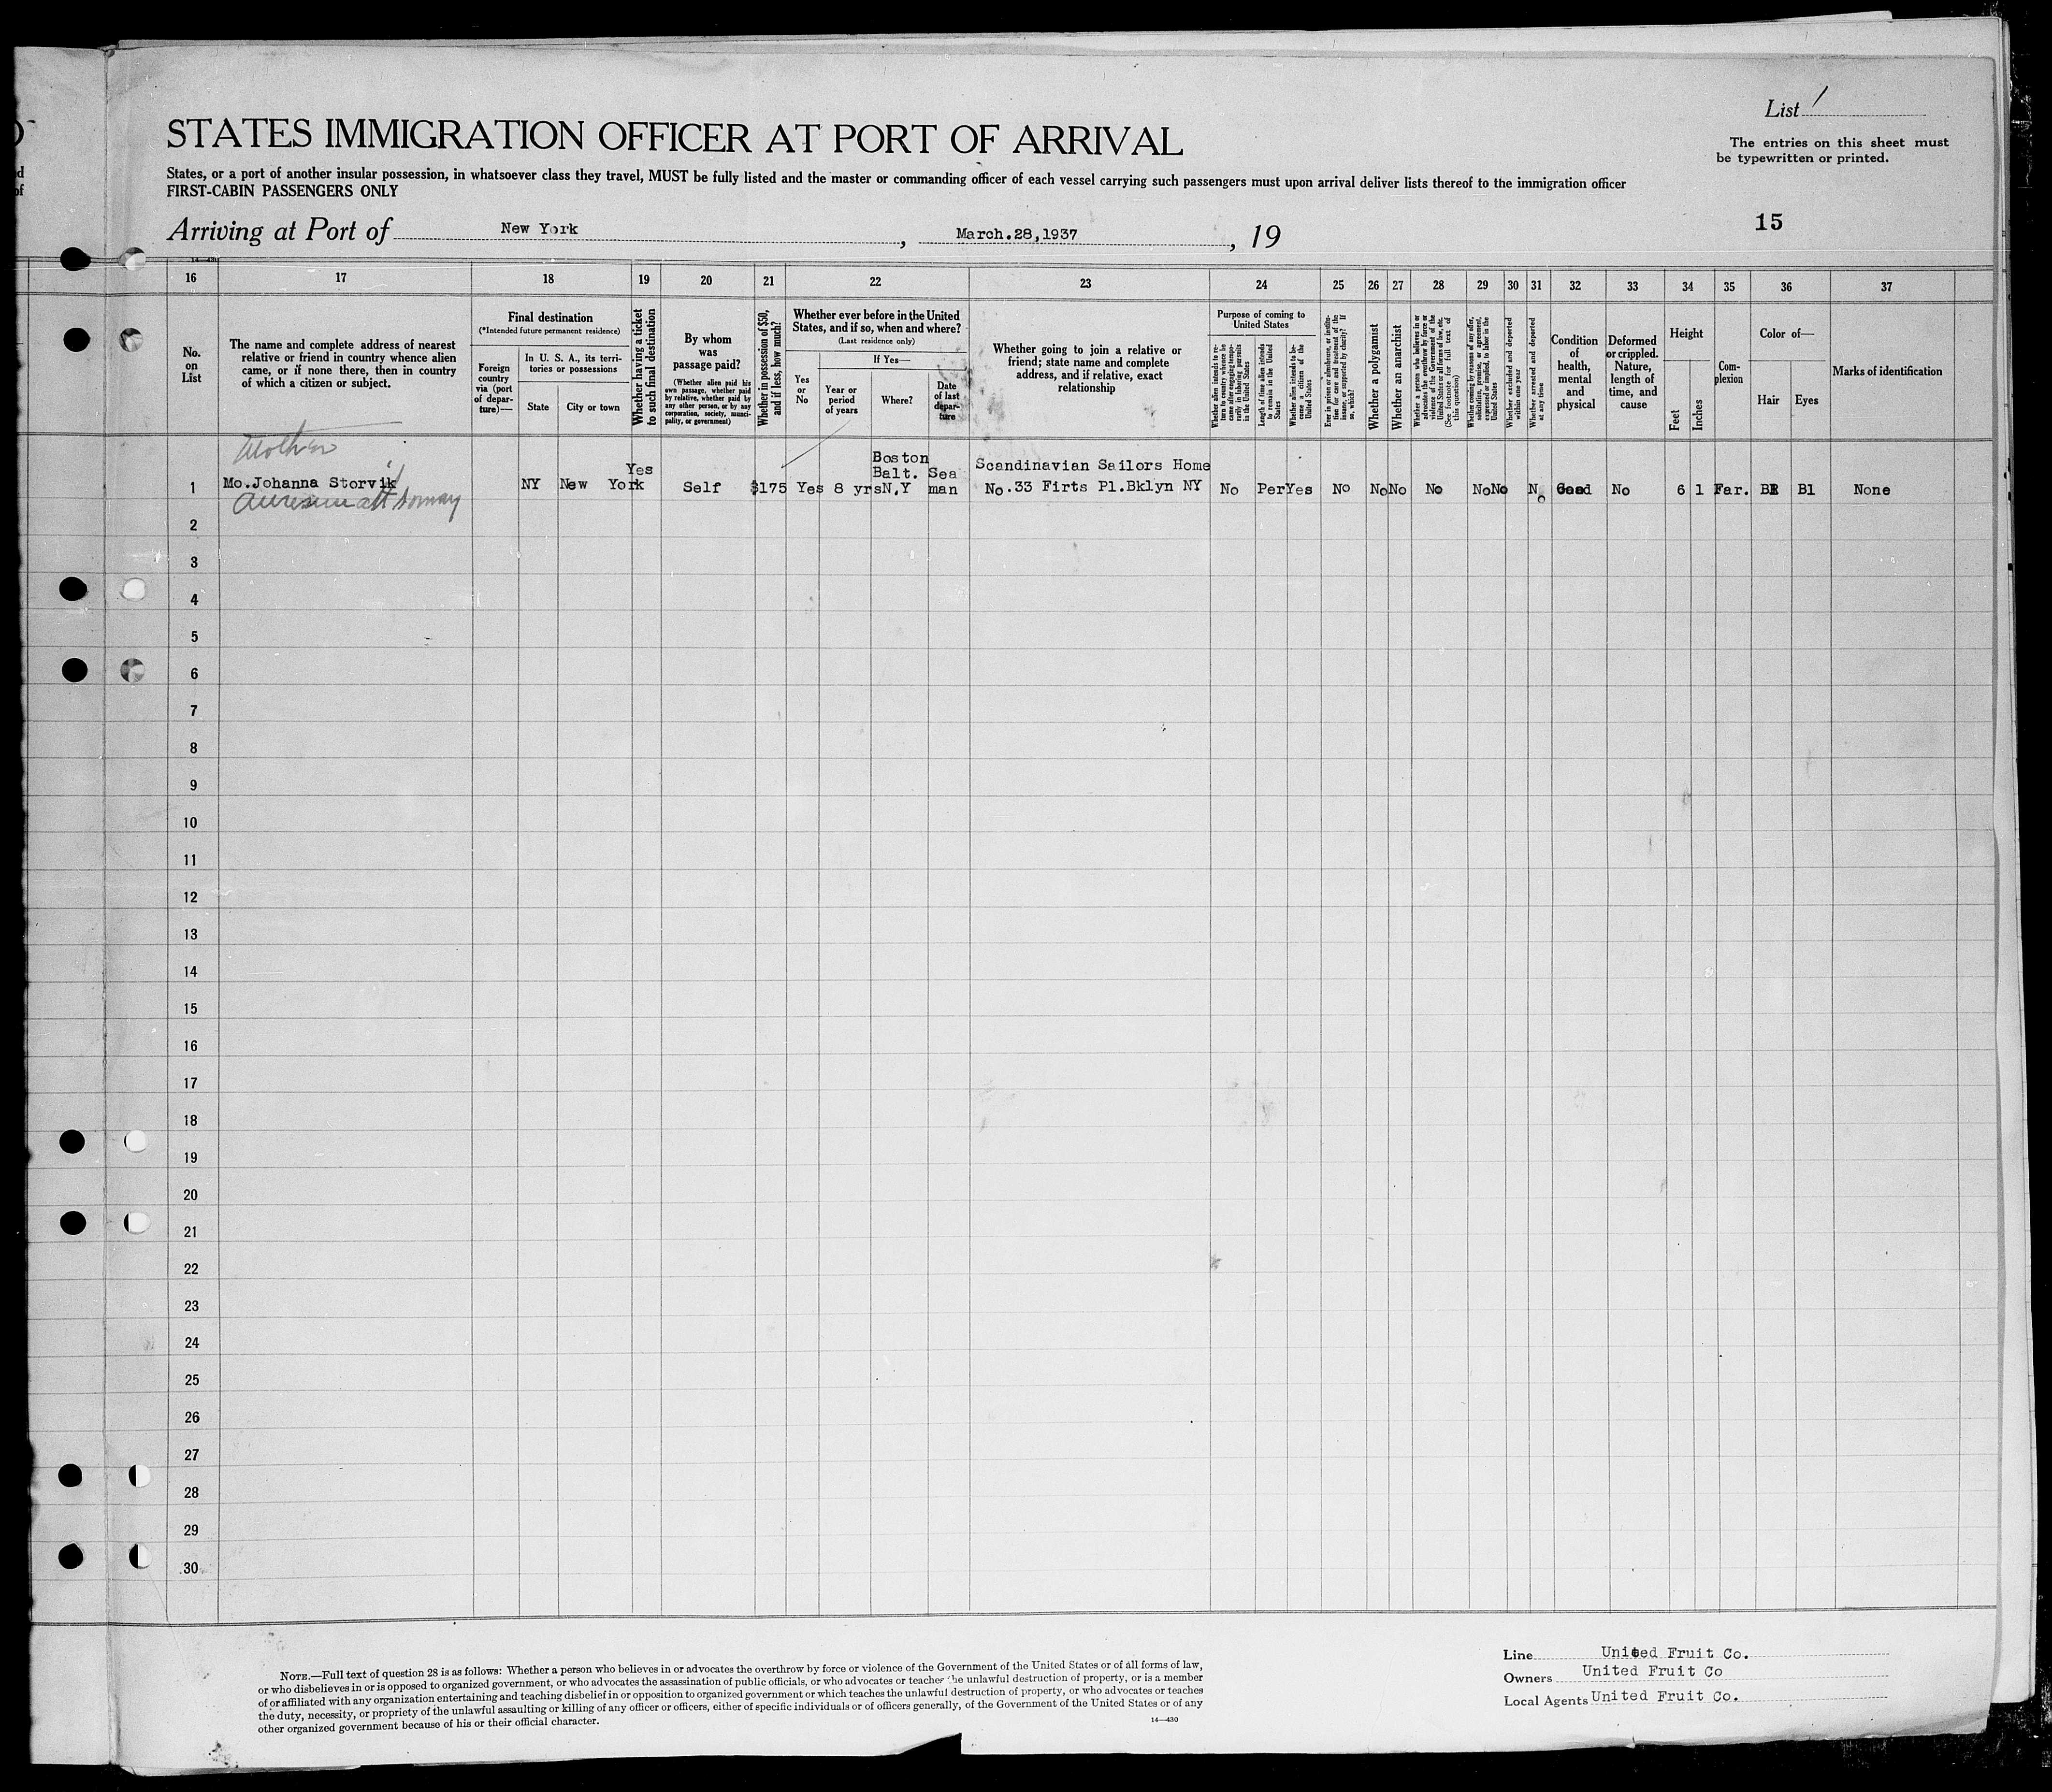 List /
STATES IMMIGRATION OFFICER AT PORT OF ARRIVAL
The entries on this sheet must
be typewritten or printed.
States, or a port of another insular possession, in whatsoever class they travel, MUST be fully listed and the master or commanding officer of each vessel carrying such passengers must upon arrival deliver lists thereof to the immigration officer
FIRST-CABIN PASSENGERS ONLY
Arriving at Port of New York, March.28,1937, 19
15
16 17 18 19 20 21 22 23 24 25 26 27 28 29 30 31 32 33 34 35 36 37
No. on List
The name and complete address of nearest relative or friend in country whence alien came, or if none there, then in country of which a citizen or subject.
Final destination
(*Intended future permanent residence)
Foreign country via (port of departure)—
In U. S. A., its territories or possessions
State
City or town
Whether having a ticket to such final destination
By whom was passage paid?
(Whether alien paid his own passage, whether paid by relative, whether paid by any other person, or by any corporation, society, municipality, or government)
Whether in possession of $50, and if less, how much?
Whether ever before in the United States, and if so, when and where?
(Last residence only)
If Yes—
Yes or No
Year or period of years
Where?
Date of last departure
Whether going to join a relative or friend; state name and complete address, and if relative, exact relationship
Purpose of coming to United States
Whether alien intends to return to country whence he came after engaging temporarily in laboring pursuits in the United States
Length of time alien intends to remain in the United States
Whether alien intends to become a citizen of the United States
Ever in prison or almshouse, or institution for care and treatment of the insane, or supported by charity? If so, which?
Whether a polygamist
Whether an anarchist
Whether a person who believes in or advocates the overthrow by force or violence of the Government of the United States or all forms of law, etc. (See footnote for full text of this question)
Whether coming by reasons of any offer, solicitation, promise, or agreement, expressed or implied, to labor in the United States
Whether excluded and deported within one year
Whether arrested and deported at any time
Condition of health, mental and physical
Deformed or crippled. Nature, length of time, and cause
Height
Feet
Inches
Complexion
Color of—
Hair
Eyes
Marks of identification
Mother
1 Mo.Johanna Storvik NY New York Yes Self $175 Yes 8 yrs Boston Balt. N,Y Sea man Scandinavian Sailors Home No.33 Firts Pl.Bklyn NY No Per Yes No No No No No No No Good No 6 1 Far. Bl None
2
3
4
5
6
7
8
9
10
11
12
13
14
15
16
17
18
19
20
21
22
23
24
25
26
27
28
29
30
NOTE.—Full text of question 28 is as follows: Whether a person who believes in or advocates the overthrow by force or violence of the Government of the United States or of all forms of law,
or who disbelieves in or is opposed to organized government, or who advocates the assassination of public officials, or who advocates or teaches the unlawful destruction of property, or is a member
of or affiliated with any organization entertaining and teaching disbelief in or opposition to organized government or which teaches the unlawful destruction of property, or who advocates or teaches
the duty, necessity, or propriety of the unlawful assaulting or killing of any officer or officers, either of specific individuals or of officers generally, of the Government of the United States or of any
other organized government because of his or their official character.
14—430
Line United Fruit Co.
Owners United Fruit Co
Local Agents United Fruit Co.